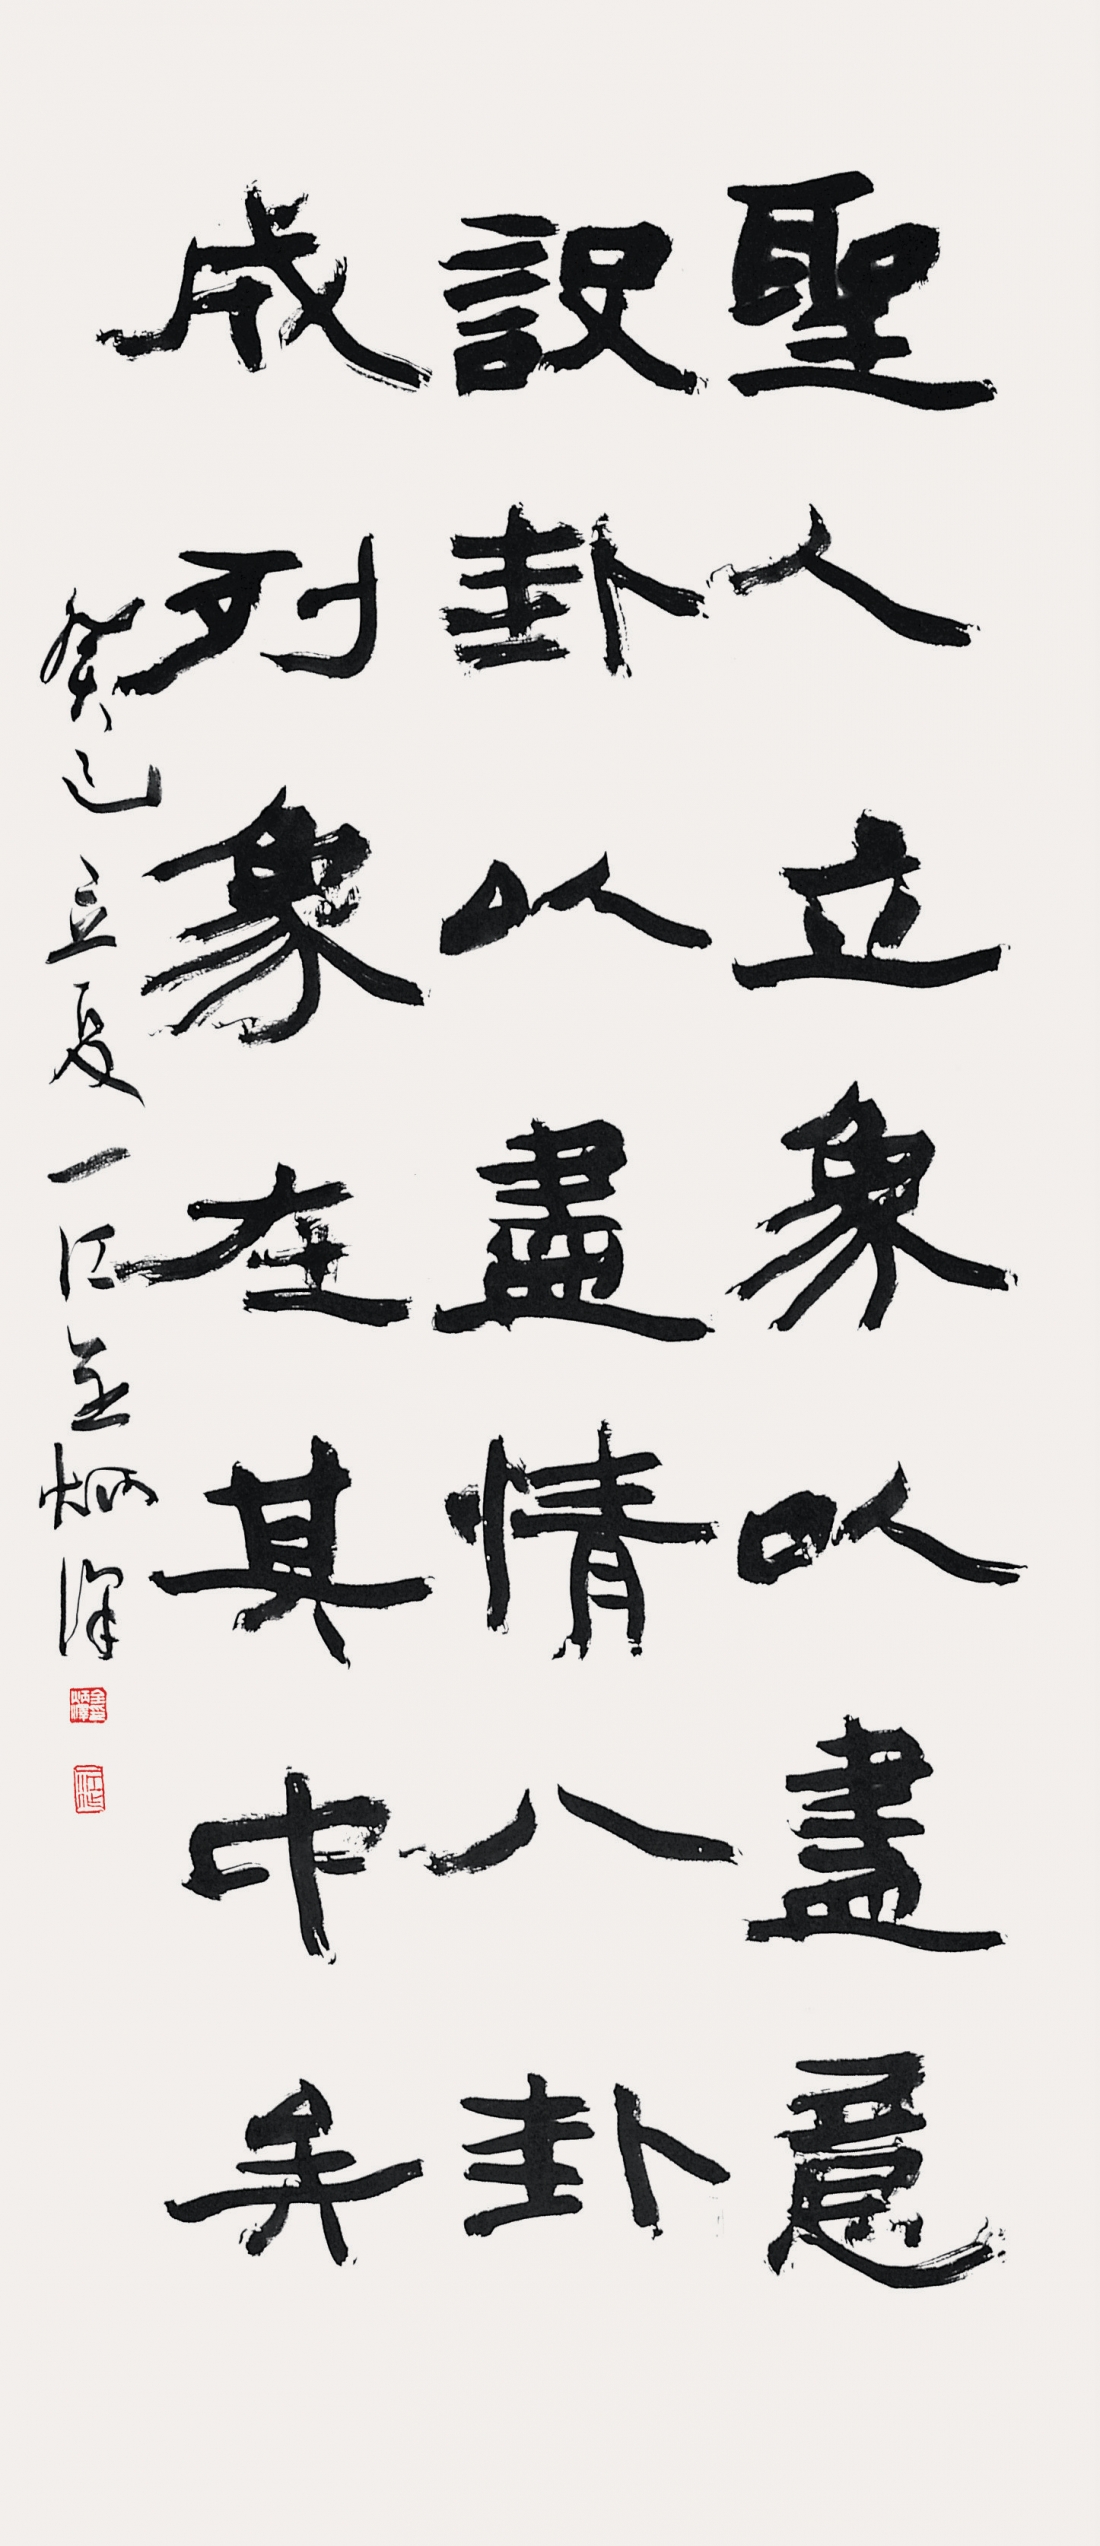 聖人立象以盡意
設卦以盡情八卦
成列象在其中矣
癸巳立夏一江金炳澤